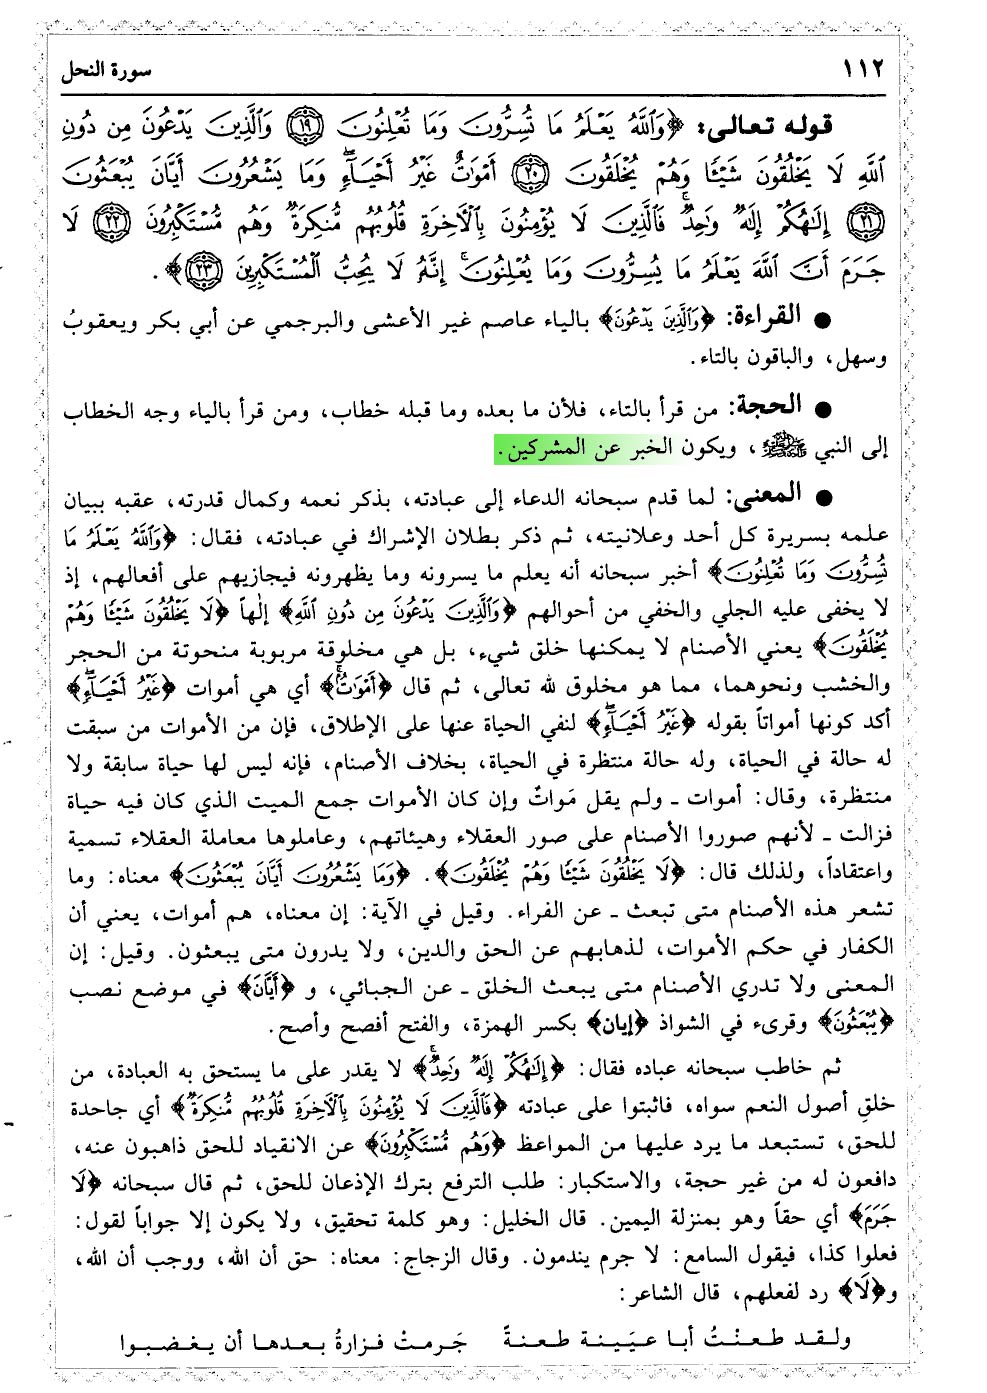 ١١٢
سورة النحل
قوله تعالى: ﴿وَٱللَّهُ يَعْلَمُ مَا تُسِرُّونَ وَمَا تُعْلِنُونَ ١٩ وَٱلَّذِينَ يَدْعُونَ مِن دُونِ
ٱللَّهِ لَا يَخْلُقُونَ شَيْـًٔا وَهُمْ يُخْلَقُونَ ٢٠ أَمْوَٰتٌ غَيْرُ أَحْيَآءٍۖ وَمَا يَشْعُرُونَ أَيَّانَ يُبْعَثُونَ
٢١ إِلَـٰهُكُمْ إِلَـٰهٌ وَٰحِدٌۚ فَٱلَّذِينَ لَا يُؤْمِنُونَ بِٱلْـَٔاخِرَةِ قُلُوبُهُم مُّنكِرَةٌ وَهُم مُّسْتَكْبِرُونَ ٢٢ لَا
جَرَمَ أَنَّ ٱللَّهَ يَعْلَمُ مَا يُسِرُّونَ وَمَا يُعْلِنُونَۚ إِنَّهُۥ لَا يُحِبُّ ٱلْمُسْتَكْبِرِينَ ٢٣﴾.
● القراءة: ﴿وَٱلَّذِينَ يَدْعُونَ﴾ بالياء عاصم غير الأعشى والبرجمي عن أبي بكر ويعقوبُ
وسهل، والباقون بالتاء.
● الحجة: من قرأ بالتاء، فلأن ما بعده وما قبله خطاب، ومن قرأ بالياء وجه الخطاب
إلى النبي ﷺ، ويكون الخبر عن المشركين.
● المعنى: لما قدم سبحانه الدعاء إلى عبادته، بذكر نعمه وكمال قدرته، عقبه ببيان
علمه بسريرة كل أحد وعلانيته، ثم ذكر بطلان الإشراك في عبادته، فقال: ﴿وَٱللَّهُ يَعْلَمُ مَا
تُسِرُّونَ وَمَا تُعْلِنُونَ﴾ أخبر سبحانه أنه يعلم ما يسرونه وما يظهرونه فيجازيهم على أفعالهم، إذ
لا يخفى عليه الجلي والخفي من أحوالهم ﴿وَٱلَّذِينَ يَدْعُونَ مِن دُونِ ٱللَّهِ﴾ إلٰهاً ﴿لَا يَخْلُقُونَ شَيْـًٔا وَهُمْ
يُخْلَقُونَ﴾ يعني الأصنام لا يمكنها خلق شيء، بل هي مخلوقة مربوبة منحوتة من الحجر
والخشب ونحوهما، مما هو مخلوق لله تعالى، ثم قال ﴿أَمْوَٰتٌ﴾ أي هي أموات ﴿غَيْرُ أَحْيَآءٍۖ﴾
أكد كونها أمواتاً بقوله ﴿غَيْرُ أَحْيَآءٍۖ﴾ لنفي الحياة عنها على الإطلاق، فإن من الأموات من سبقت
له حالة في الحياة، وله حالة منتظرة في الحياة، بخلاف الأصنام، فإنه ليس لها حياة سابقة ولا
منتظرة، وقال: أموات ـ ولم يقل مَواتٌ وإن كان الأموات جمع الميت الذي كان فيه حياة
فزالت ـ لأنهم صوروا الأصنام على صور العقلاء وهيئاتهم، وعاملوها معاملة العقلاء تسمية
واعتقاداً، ولذلك قال: ﴿لَا يَخْلُقُونَ شَيْـًٔا وَهُمْ يُخْلَقُونَ﴾. ﴿وَمَا يَشْعُرُونَ أَيَّانَ يُبْعَثُونَ﴾ معناه: وما
تشعر هذه الأصنام متى تبعث ـ عن الفراء. وقيل في الآية: إن معناه، هم أموات، يعني أن
الكفار في حكم الأموات، لذهابهم عن الحق والدين، ولا يدرون متى يبعثون. وقيل: إن
المعنى ولا تدري الأصنام متى يبعث الخلق ـ عن الجبائي، و﴿أَيَّانَ﴾ في موضع نصب
﴿يُبْعَثُونَ﴾ وقرىء في الشواذ ﴿إيان﴾ بكسر الهمزة، والفتح أفصح وأصح.
ثم خاطب سبحانه عباده فقال: ﴿إِلَـٰهُكُمْ إِلَـٰهٌ وَٰحِدٌۚ﴾ لا يقدر على ما يستحق به العبادة، من
خلقِ أصول النعم سواه، فاثبتوا على عبادته ﴿فَٱلَّذِينَ لَا يُؤْمِنُونَ بِٱلْـَٔاخِرَةِ قُلُوبُهُم مُّنكِرَةٌ﴾ أي جاحدة
للحق، تستبعد ما يرد عليها من المواعظ ﴿وَهُم مُّسْتَكْبِرُونَ﴾ عن الانقياد للحق ذاهبون عنه،
دافعون له من غير حجة، والاستكبار: طلب الترفع بترك الإذعان للحق، ثم قال سبحانه ﴿لَا
جَرَمَ﴾ أي حقاً وهو بمنزلة اليمين. قال الخليل: وهو كلمة تحقيق، ولا يكون إلا جواباً لقول:
فعلوا كذا، فيقول السامع: لا جرم يندمون. وقال الزجاج: معناه: حق أن الله، ووجب أن الله،
و﴿لَا﴾ رد لفعلهم، قال الشاعر:
ولـقـد طـعـنْـتُ أبـا عـيَـيـنـة طـعـنـةً    جَـرمـتْ فـزارةُ بـعـدهـا أن يـغـضـبـوا